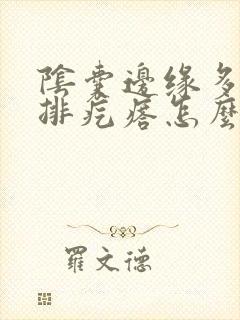 陰囊邊緣多
排疙瘩怎麼
羅文德